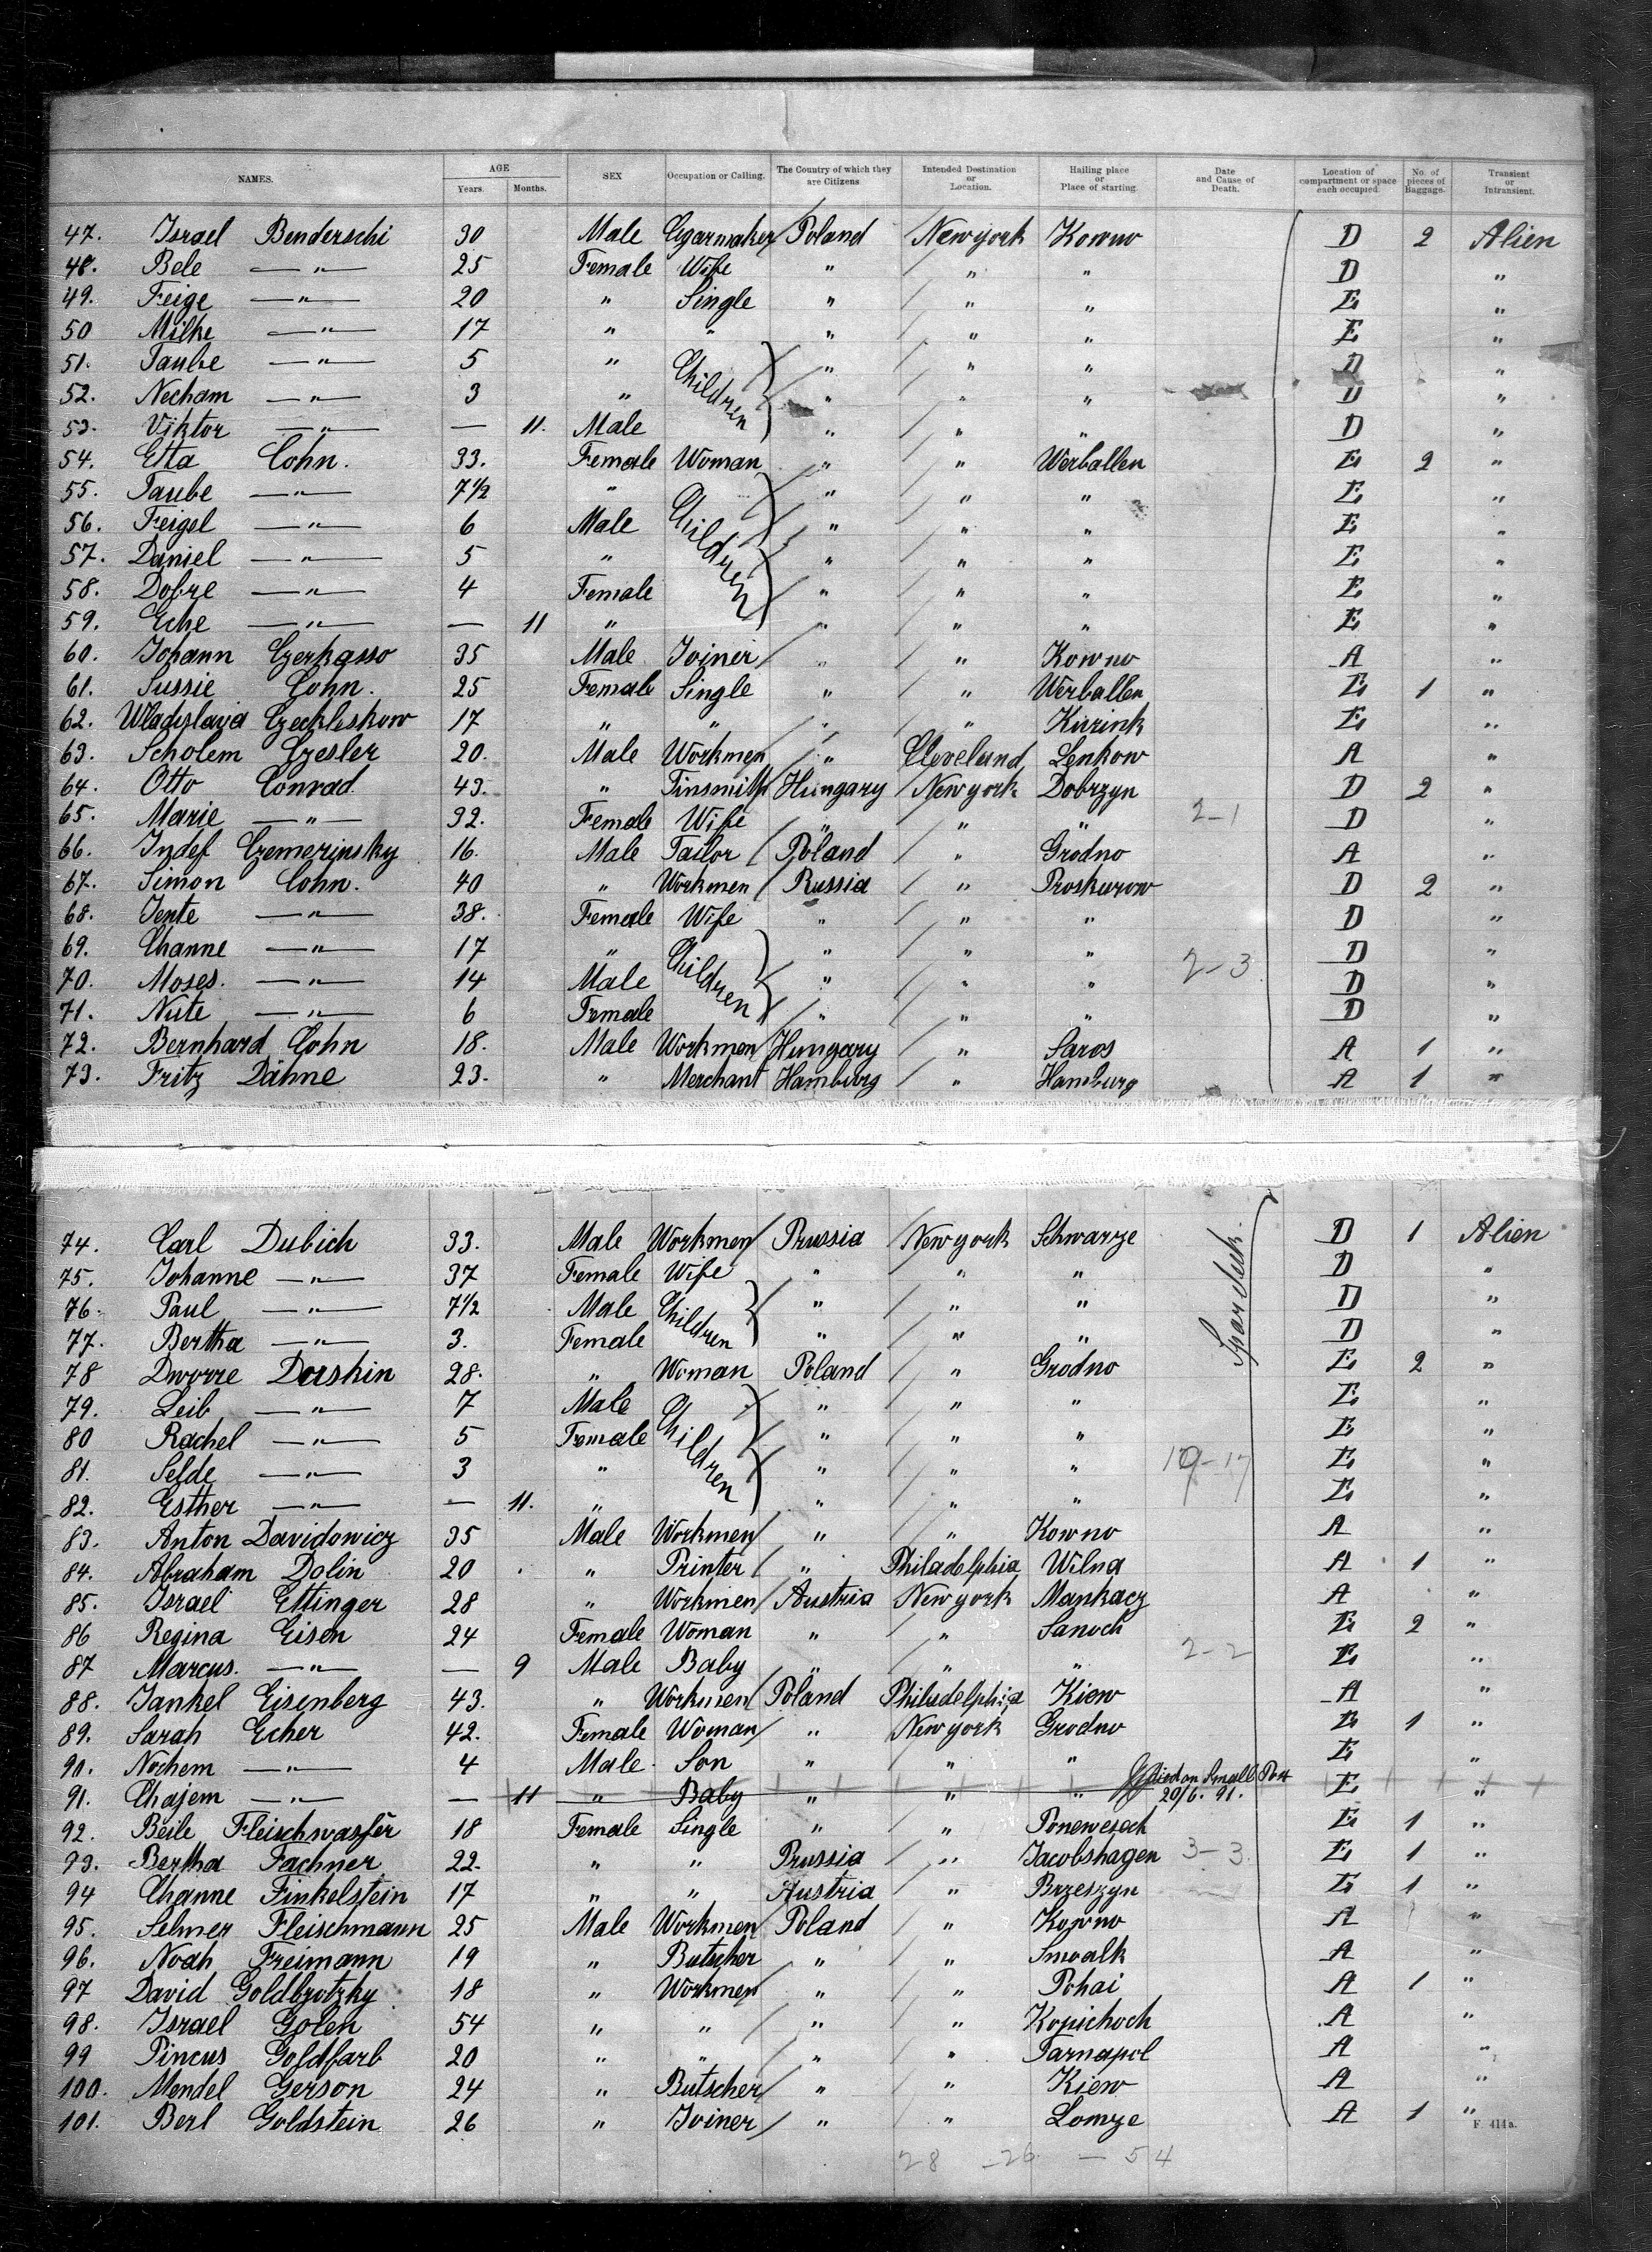 NAMES. AGE Years. Months. SEX Occupation or Calling. The Country of which they are Citizens Intended Destination or Location. Hailing place or Place of starting. Date and Cause of Death. Location of compartment or space each occupied. No. of pieces of Baggage. Transient or Intransient.
47. Israel Benderschi 30 Male Cigarmaker Poland Newyork Kowno D 2 Alien
48. Bele —"— 25 Female Wife " " " D "
49. Feige —"— 20 " Single " " " E "
50 Milke —"— 17 " " " " " E "
51. Taube —"— 5 " Children " " " D "
52. Necham —"— 3 " " " " D "
53. Viktor —"— — 11. Male " " " D "
54. Etta Cohn. 33. Female Woman " " Werballen E 2 "
55. Taube —"— 7 1/2 " Children " " " E "
56. Feigel —"— 6 Male " " " E "
57. Daniel —"— 5 " " " " E "
58. Dobre —"— 4 Female " " " E "
59. Eche —"— — 11 " " " " E "
60. Johann Czerkasso 35 Male Joiner " " Kowno A "
61. Sussie Cohn. 25 Female Single " " Werballen E 1 "
62. Wladyslaya Czeckliskow 17 " " " " Kurink E "
63. Scholem Czesler 20. Male Workmen " Cleveland Lenkow A "
64. Otto Conrad 43. " Tinsmith Hungary Newyork Dobrzyn D 2 "
65. Marie —"— 32. Female Wife " " " 2-1 D "
66. Indef Czemerinsky 16. Male Tailor Poland " Grodno A "
67. Simon Cohn. 40 " Workmen Russia " Proskurow D 2 "
68. Jente —"— 38. Female Wife " " " D "
69. Channe —"— 17 " Children " " " 2-3 D "
70. Moses. —"— 14 Male " " " D "
71. Nute —"— 6 Female " " " D "
72. Bernhard Cohn 18. Male Workmen Hungary " Saros A 1 "
73. Fritz Dähne 23. " Merchant Hamburg " Hamburg A 1 "
74. Carl Dubich 33. Male Workmen Prussia Newyork Schwarze D 1 Alien
75. Johanne —"— 37 Female Wife " " " D "
76. Paul —"— 7 1/2 Male Children " " " D "
77. Bertha —"— 3. Female " " " D "
78 Dworre Dorshin 28. " Woman Poland " Grodno E 2 "
79. Leib —"— 7 Male Children " " " E "
80 Rachel —"— 5 Female " " " E "
81. Selde —"— 3 " " " " 19-17 E "
82. Esther —"— — 11. " " " " E "
83. Anton Davidowicz 35 Male Workmen " " Kowno A "
84. Abraham Dolin 20 " Printer " Philadelphia Wilna A 1 "
85. Israel Ettinger 28 " Workmen Austria Newyork Mankacz A "
86 Regina Eisen 24 Female Woman " " Sanoch E 2 "
87 Marcus. —"— — 9 Male Baby " " " 2-2 E "
88. Jankel Eisenberg 43. " Workmen Poland Philadelphia Kiew A "
89. Sarah Echer 42. Female Woman " Newyork Grodno E 1 "
90. Nochem —"— 4 Male Son " " " E "
91. Chajem —"— — 11 " Baby " " " died on Small Pox 20/6. 91. E "
92. Beile Fleischwasser 18 Female Single " " Ponewesch E 1 "
93. Bertha Fachner 22. " " Prussia " Jacobshagen 3-3 E 1 "
94 Channe Finkelstein 17 " " Austria " Brzeszyn E 1 "
95. Selmer Fleischmann 25 Male Workmen Poland " Kowno A "
96. Noah Freimann 19 " Butscher " " Smoalk A "
97 David Goldbrotzky 18 " Workmen " " Pohai A 1 "
98. Israel Golen 54 " " " " Kopichoch A "
99 Pincus Goldfarb 20 " " " " Tarnapol A "
100. Mendel Gerson 24 " Butscher " " Kiew A "
101. Berl Goldstein 26 " Joiner " " Lomze A 1 "
F. 414a.
28 - 26 - 54